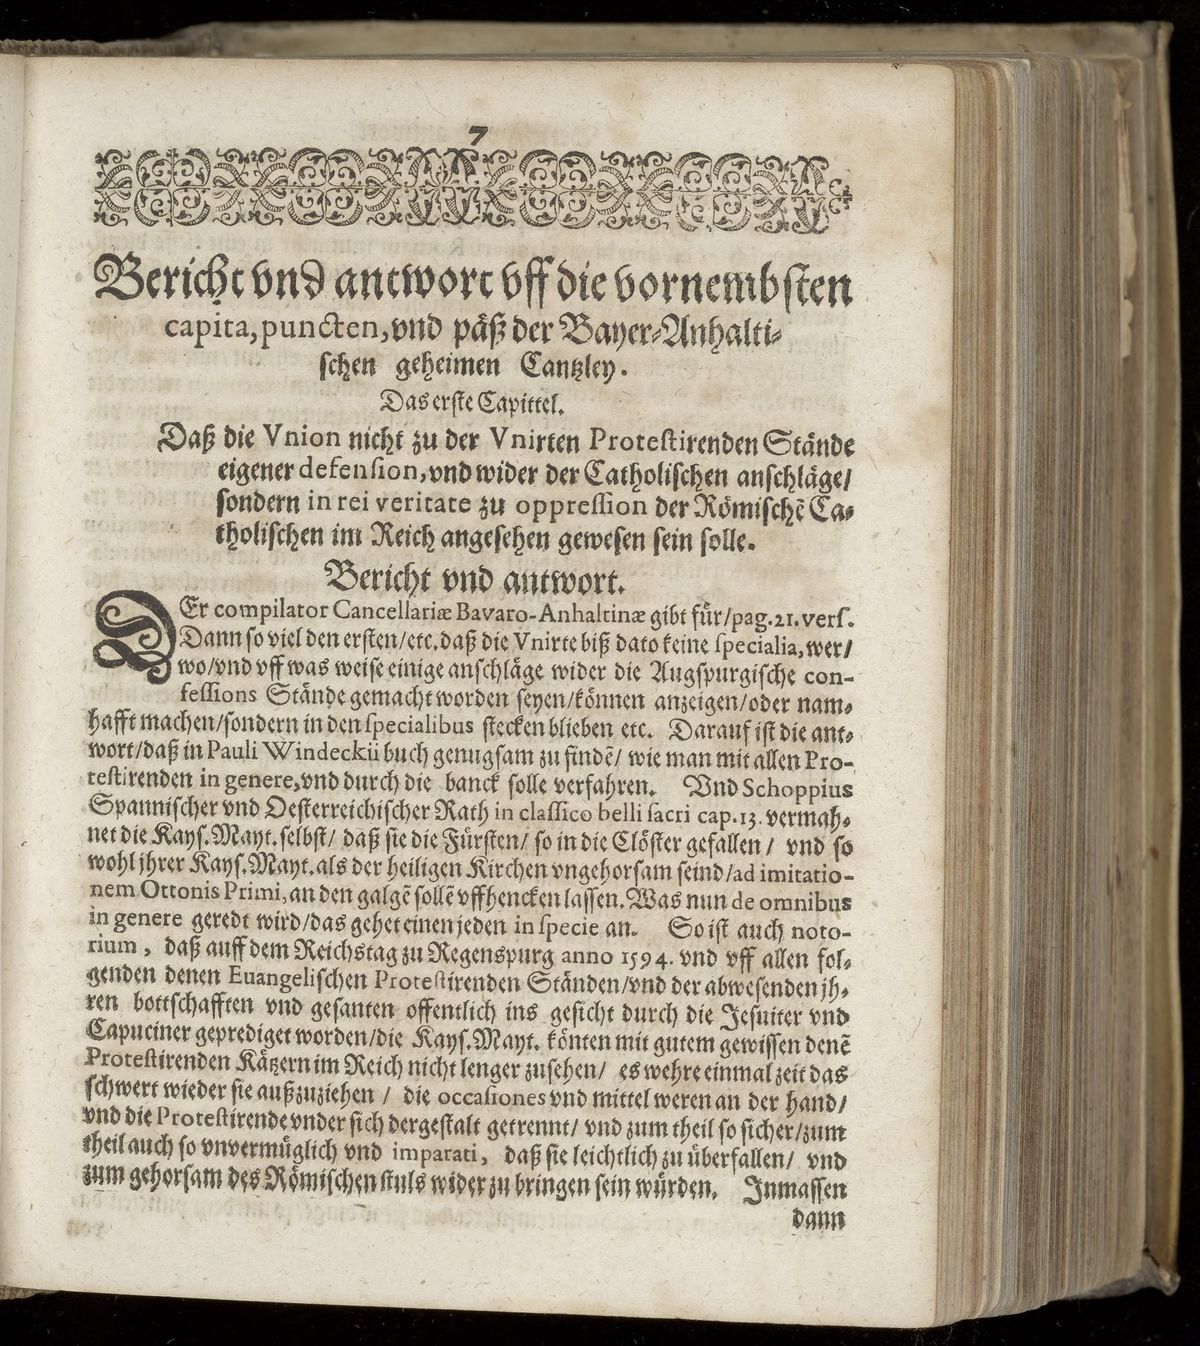 7
Bericht vnd antwort vff die vornembsten
capita, puncten, vnd päß der Bayer-Anhalti-
schen geheimen Cantzley.
Das erste Capittel.
Daß die Vnion nicht zu der Vnirten Protestirenden Stände
eigener defension, vnd wider der Catholischen anschläge/
sondern in rei veritate zu oppression der Römischẽ Ca-
tholischen im Reich angesehen gewesen sein solle.
Bericht vnd antwort.
DEr compilator Cancellariæ Bavaro-Anhaltinæ gibt für/pag.21. vers.
Dann so viel den ersten/etc. daß die Vnirte biß dato keine specialia, wer/
wo/vnd vff was weise einige anschläge wider die Augspurgische con-
fessions Stände gemacht worden seyen/können anzeigen/oder nam-
hafft machen/sondern in den specialibus stecken blieben etc. Darauf ist die ant-
wort/daß in Pauli Windeckii buch genugsam zu findẽ/ wie man mit allen Pro-
testirenden in genere, vnd durch die banck solle verfahren. Vnd Schoppius
Spannischer vnd Oesterreichischer Rath in classico belli sacri cap.13. vermah-
net die Kays. Mayt. selbst/ daß sie die Fürsten/ so in die Clöster gefallen/ vnd so
wohl jhrer Kays. Mayt. als der heiligen Kirchen vngehorsam seind/ad imitatio-
nem Ottonis Primi, an den galgẽ sollẽ vffhencken lassen. Was nun de omnibus
in genere geredt wird/das gehet einen jeden in specie an. So ist auch noto-
rium, daß auff dem Reichstag zu Regenspurg anno 1594. vnd vff allen fol-
genden denen Euangelischen Protestirenden Ständen/vnd der abwesenden jh-
ren bottschafften vnd gesanten offentlich ins gesicht durch die Jesuiter vnd
Capuciner geprediget worden/die Kays. Mayt. könten mit gutem gewissen denẽ
Protestirenden Kätzern im Reich nicht lenger zusehen/ es wehre einmal zeit das
schwert wieder sie außzuziehen / die occasiones vnd mittel weren an der hand/
vnd die Protestirende vnder sich dergestalt getrennt/ vnd zum theil so sicher/zum
theil auch so vnvermüglich vnd imparati, daß sie leichtlich zu überfallen/ vnd
zum gehorsam des Römischen stuls wider zu bringen sein würden. Inmassen
dann